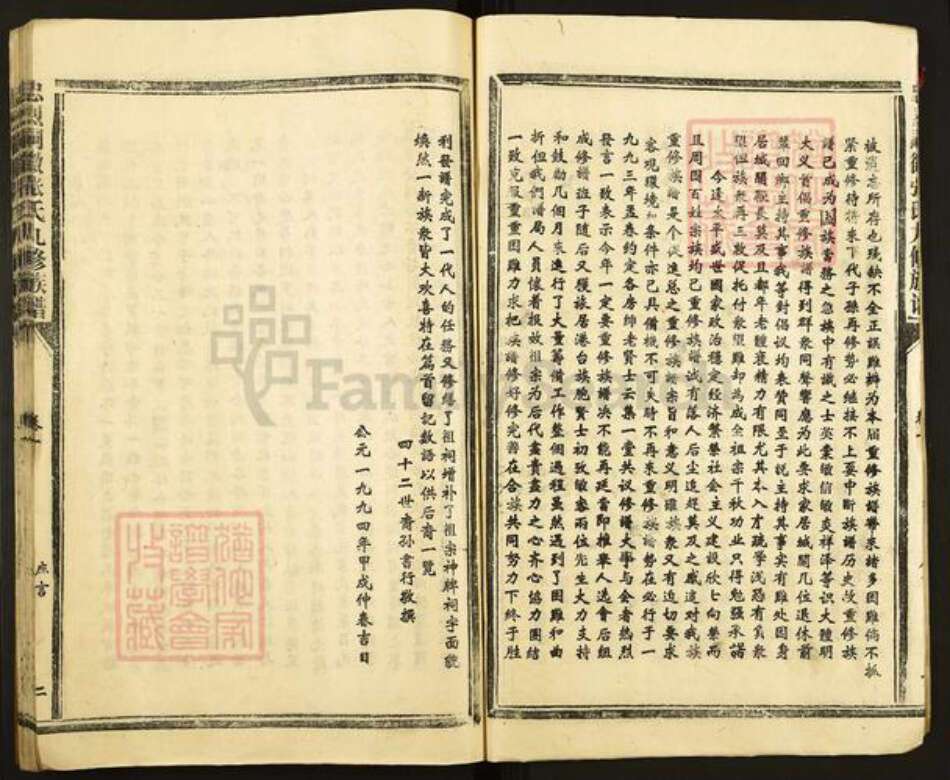 被遗忘所存也残缺不全正误难辨为本届重修族谱带来诸多困难倘不抓
紧重修待将来下代子孙再修势必继接不上要中断族谱历史故重修族
谱已成为阖族当务之急族中有识之士英素敏信敏炎祥泽等识大体明
大义首倡重修族谱得到群众同声响应为此要求家居城关几位退休前
辈回乡主持其事我等对倡议均表赞同至于说主持其事实有难处因身
居城关鞭长莫及且都年老体衰精力有限尤其本人才疏学浅恐有负众
望但族众再三敦促托付众望难却为成全祖宗千秋功业只得勉强承诺
今逢太平盛世国家政治稳定经济繁荣社会主义建设欣欣向荣而
且周围百姓宗族均已重修族谱诚有落人后尘追赶莫及之感这对我族
重修族谱是个促进总之重修族谱宗旨和意义明确族众又有迫切要求
客观环境和条件亦已具备机不可失时不再来重修族谱势在必行于一
九九三年孟春约定各房绅老贤士云集一堂共议修谱大事与会者热烈
发言一致表示今年一定要重修族谱决不能再延当即推举人选会后组
成修谱班子随后又获旅居港台族胞贤士初致敏容两位先生大力支持
和鼓励几个月来进行了大量筹备工作整个过程虽然遇到了困难和曲
折但我们谱局人员怀着报效祖宗为后代尽责尽力之心齐心协力团结
一致克服重重困难力求把族谱修好修完善在合族共同努力下终于胜
利发谱完成了一代人的任务又修缮了祖祠增补了祖宗神牌祠宇面貌
焕然一新族众皆大欢喜特在篇首留记数语以供后裔一览
四十二世裔孙书行敬撰
公元一九九四年甲戌仲春吉日
张氏九修族谱
卷一
序言
二